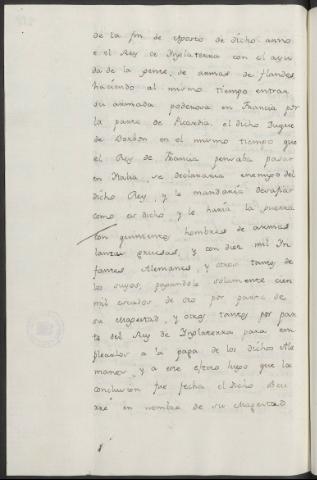 de la fin de Agosto de dicho anno
e el Rey de Inglaterra con el ayu
da de la gente, de armas de flandes
haciendo al mismo tiempo entrar
su armada poderosa en Francia por
la parte de Picardia, el dicho Duque
de Borbon en el mismo tiempo que
el Rey de Francia pensaba pasar
en Italia, se declararia enemigo del
dicho Rey, y le mandaria desafiar
como es dicho, y le haria la guerra
con quinientos hombres de armas
lanzas gruesas, y con diez mil In
fantes Alemanes, y otros tantos de
los suyos, pagandole solamente cien
mil escudos de oro por parte de
su Magestad, y otros tantos por par
te del Rey de Inglaterra para em
plearlos a la paga de los dichos Ale
manes, y a este efecto luego que la
conclusion fue fecha el dicho Beu
rre en nombre de su Magestad